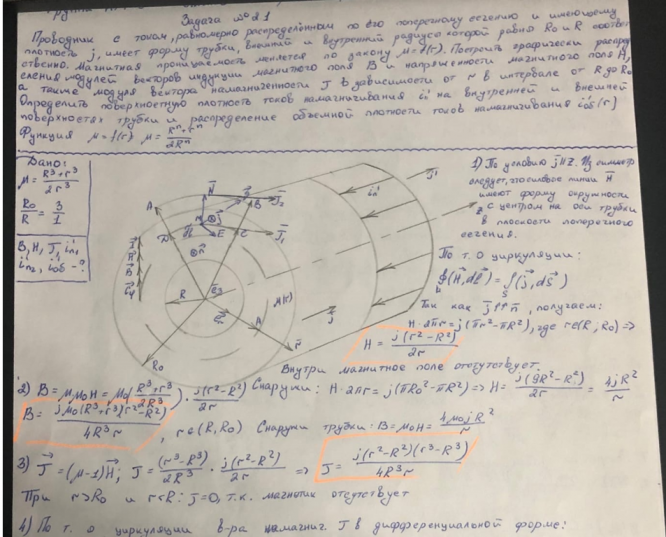 Задача № 2.1
Проводник с током, равномерно распределённым по его поперечному сечению и имеющему
плотность j, имеет форму трубки, внешний и внутренний радиусы которой равны R₀ и R соответ
ственно. Магнитная проницаемость меняется по закону μ = f(r). Построить графически распред
еления модулей векторов индукции магнитного поля B и напряженности магнитного поля H,
а также модуля вектора намагниченности J в зависимости от r в интервале от R до R₀
Определить поверхностную плотность токов намагничивания iп' на внутренней и внешней
поверхностях трубки и распределение объемной плотности токов намагничивания i'об(r)
Функция μ = f(r) μ = (Rⁿ+rⁿ)/(2Rⁿ)
Дано:
μ = (R³+r³)/(2r³)
R₀/R = 3/1
B, H, J, iп₁'
iп₂', iоб - ?
1) По условию j∥Z. Из симметр
следует, что силовые линии H
имеют форму окружности
с центром на оси трубки
в плоскости поперечного
сечения.
По т. о циркуляции:
∮(H, dℓ) = ∫(j, dS)
L S
Так как j↑↑n, получаем:
H·2πr = j(πr²-πR²), где r∈(R, R₀) =>
H = j(r²-R²)/(2r)
Внутри магнитное поле отсутствует.
2) B = μμ₀H = μ₀((R³+r³)/(2R³))·j(r²-R²)/(2r) Снаружи: H·2πr = j(πR₀²-πR²) => H = j(9R²-R²)/(2r) = 4jR²/r
B = jμ₀(R³+r³)(r²-R²)/(4R³r), r∈(R, R₀) Снаружи трубки: B = μ₀H = 4μ₀jR²/r
3) J = (μ-1)H; J = (r³-R³)/(2R³)·j(r²-R²)/(2r) => J = j(r²-R²)(r³-R³)/(4R³r)
При r>R₀ и r<R: j=0, т.к. магнетик отсутствует
4) По т. о циркуляции в-ра намагнич. J в дифференциальной форме: